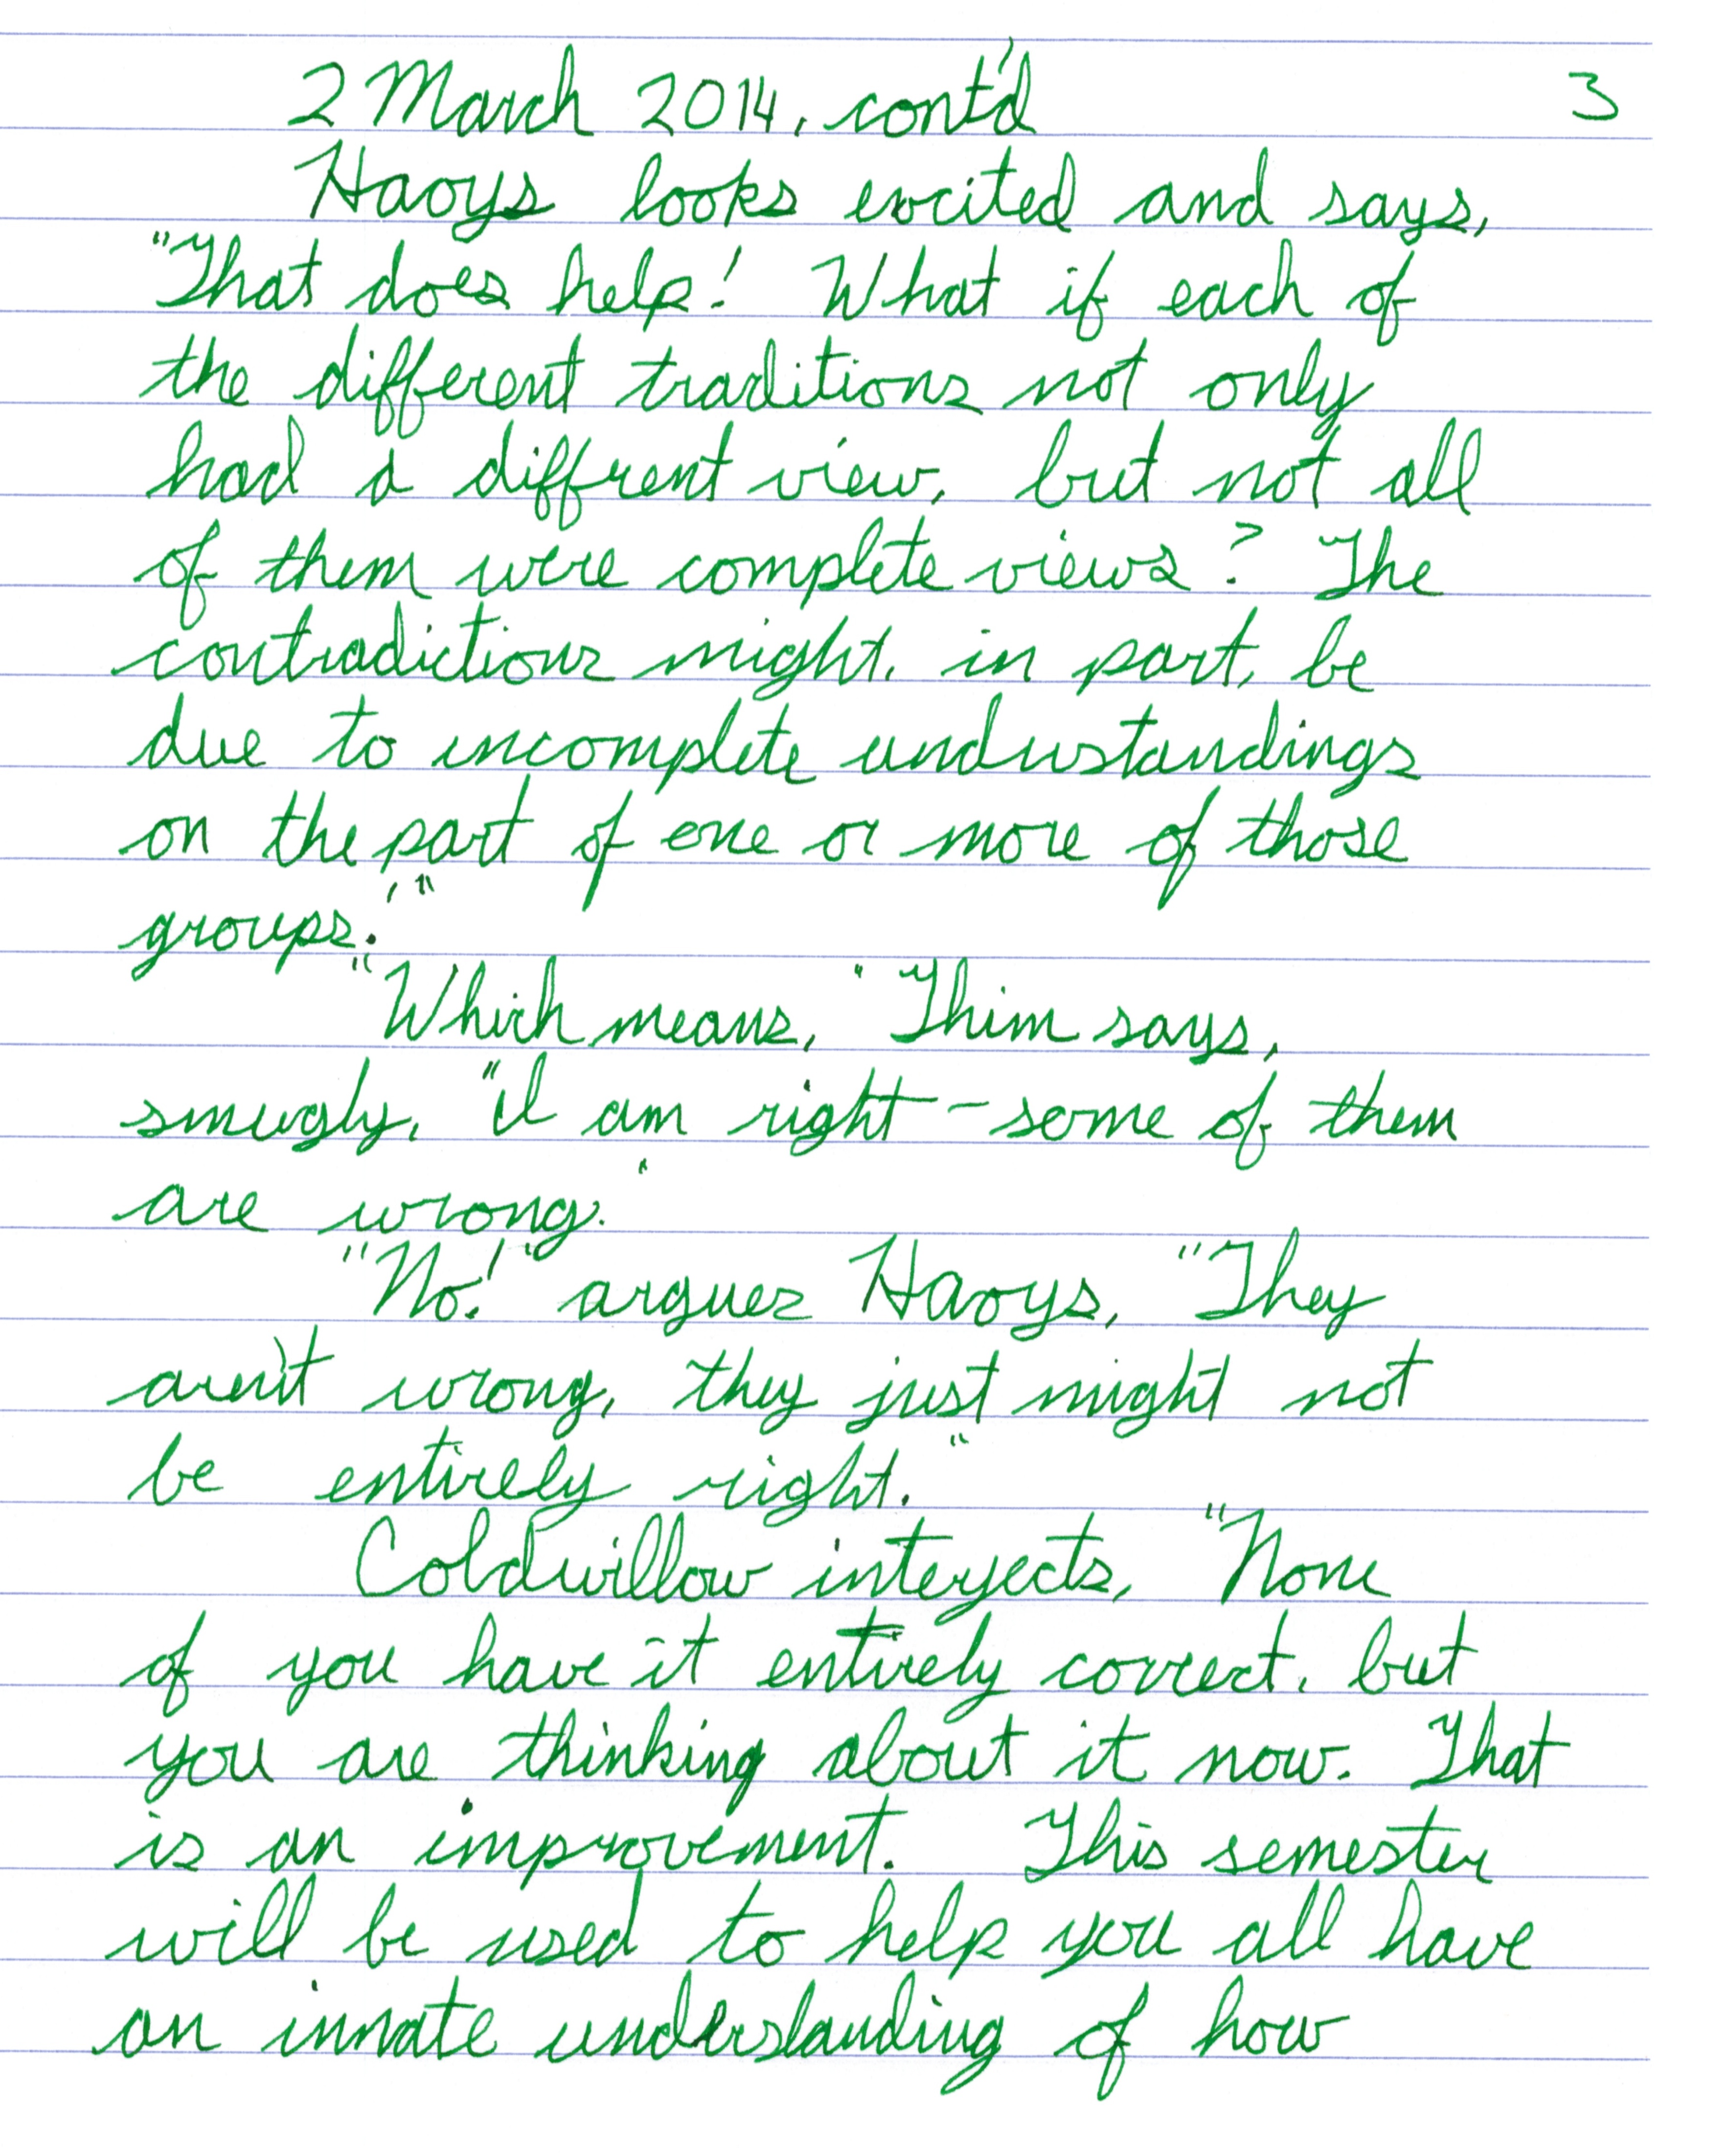 2 March 2014, cont'd 3
Haoys looks excited and says,
"That does help! What if each of
the different traditions not only
had a diffrent view, but not all
of them were complete views? The
contradictions might, in part, be
due to incomplete understandings
on the part of one or more of those
groups!"
"Which means," Thim says,
smugly, "I am right – some of them
are wrong."
"No!" argues Haoys, "They
aren't wrong, they just might not
be entirely right."
Coldwillow interjects, "None
of you have it entirely correct, but
you are thinking about it now. That
is an improvement. This semester
will be used to help you all have
an innate understanding of how